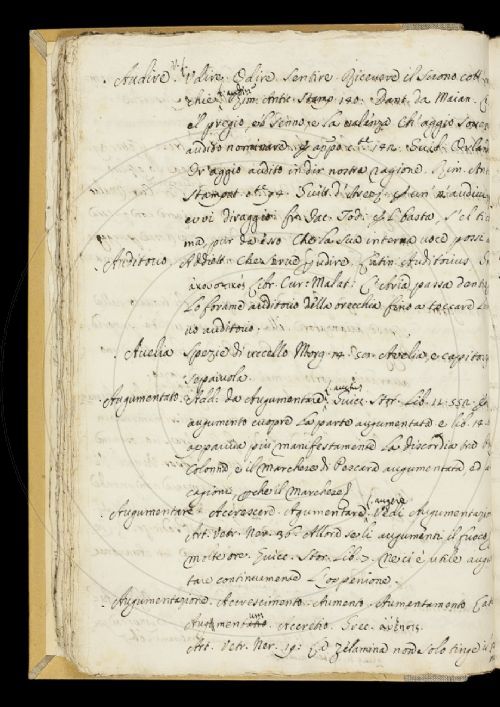 Audire V. Udire. Odire. Sentire. Ricevere il suono coll'
chie. Rim. Antic. Stamp. 140. Dant. da Maian.
el pregio, e'l senno, e la valenza Ch'aggio sovente
audito nominare. appo c.te 142. Guid. Orlan
Or'aggio audito in dir nostra ragione. Rim. Ant
Stampat. c.te 94.
e vi diraggio. fra Iac. Tod. El basta, s'el
ma, pur da esso Che la sua interna voce possi a
Auditorio Addiett. Che serve all'udire. Latin. Auditorius.
ἀκουστικός Libr. Cur. Malat. L'aria passa dentro
Lo forame auditorio della orecchia fino a toccare l
vo auditorio.
Avelia Spezie di uccello Morg. 14. 58. Avelia, e capitor
Augumentato. Add. da Augumentare. Guicc. Stor. Lib. 11. 552.
augumento cuopre la parte augumentata e lib. 18.
appariva più manifestamente la discordia tra
Colonna e il Marchese di Pescara augumentata, ed a
cagione, perche il Marchese
Augumentare Accrescere. Agumentare. Vedi Augumentazio
augere
Art. Vetr. Ner. 36. Allora se li augumenti il fuoco
molte ore. Guicc. Stor. Lib. 3. Ne ci è utile augu
tare continuamente L'oppenione.
Augumentazione. Accrescimento. Aumento. Aumentamento Lat
Augmentum. Accretio. Grec. αὔξησις.
Art. Vetr. Ner. 19. La Zelamina non solo tinge il